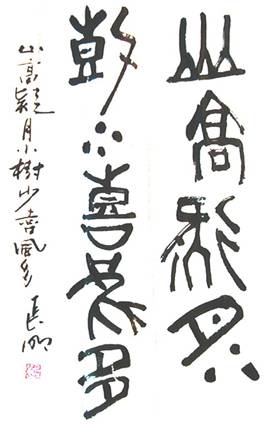 山高疑月小
樹少喜風多
山高疑月小樹少喜風多 長